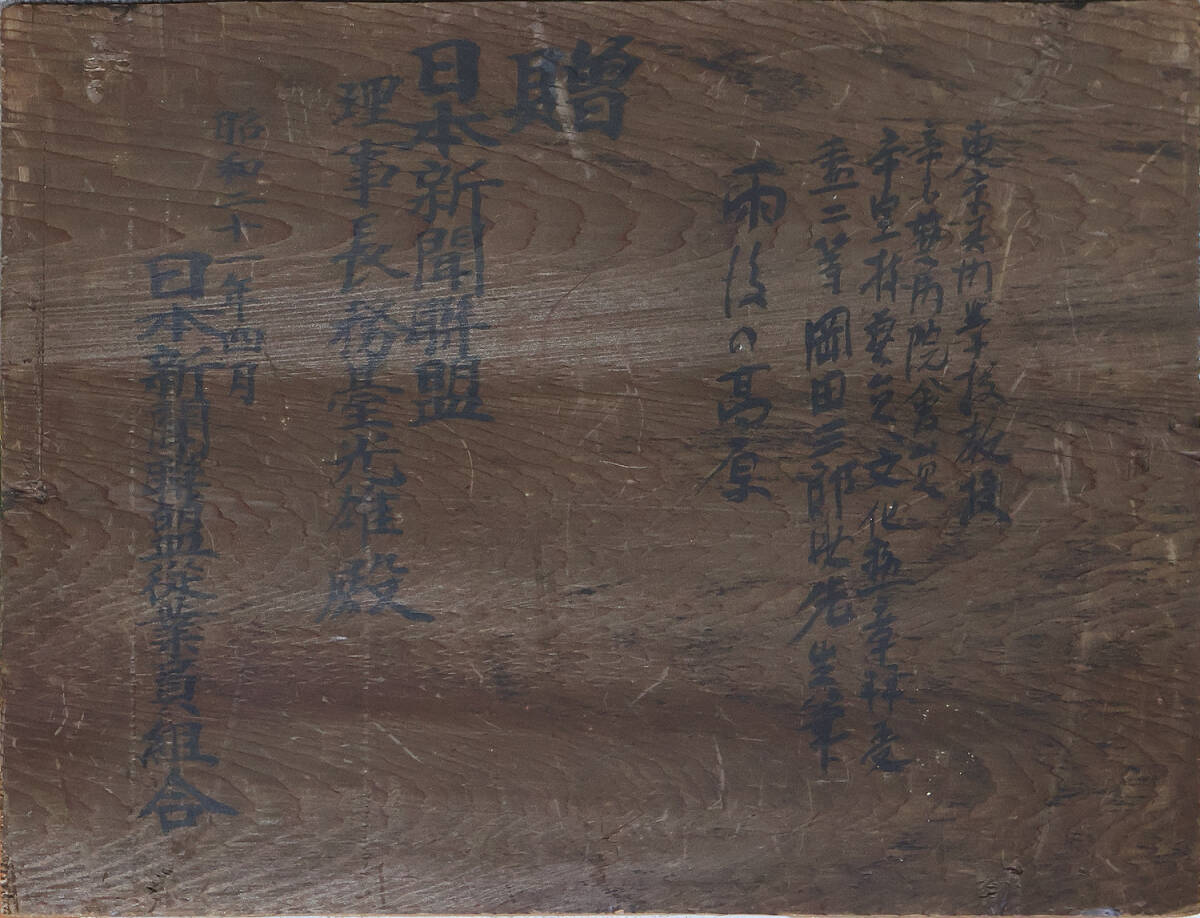 東京美術学校教授
帝國藝術院會員
帝室技藝員文化勲章拝受
勲二等岡田三郎助先生筆
雨後の高原
贈
日本新聞聯盟
理事長務臺光雄殿
昭和二十一年四月
日本新聞聯盟從業員組合